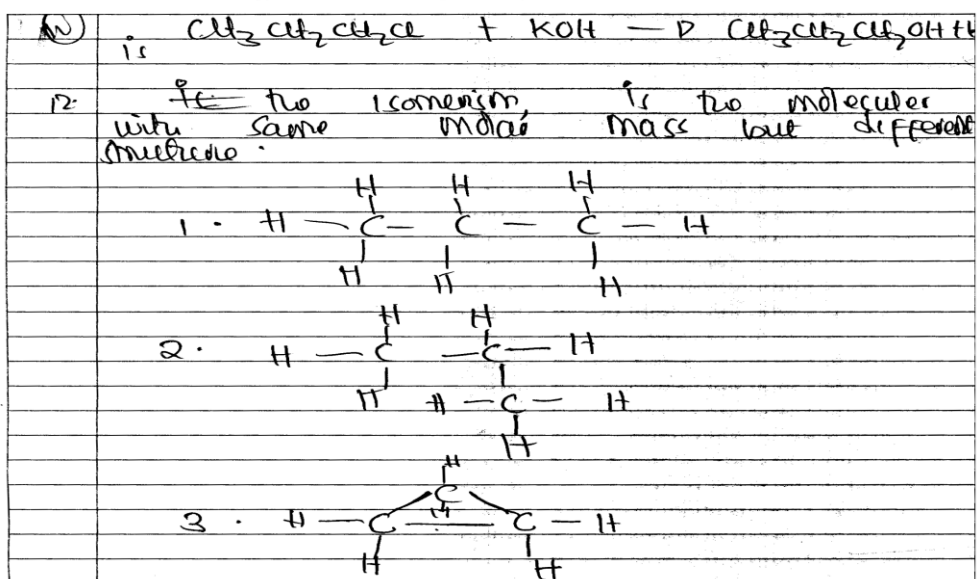 (iv) CH3 CH2 CH2Cl + KOH → CH3CH2CH2OH
is
12. the Isomerism, is two moleculer
with same molar mass but different
structure.
H H H
1. H — C — C — C — H
H H H
H H
2. H — C — C — H
H H — C — H
H
H
C
3. H — C H C — H
H H